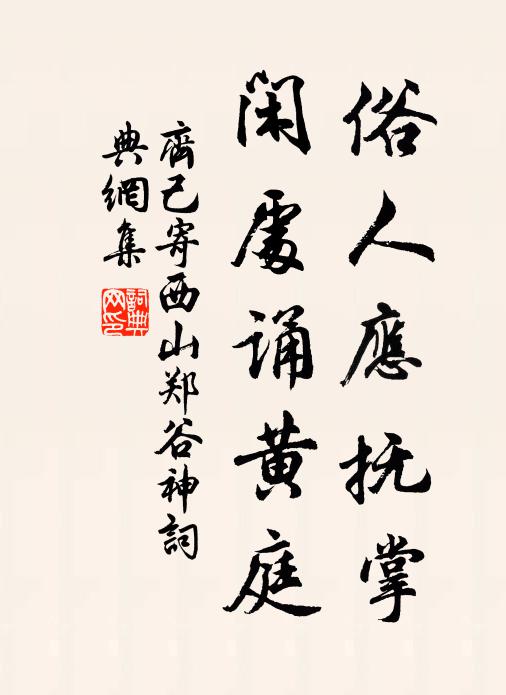 俗人應抚掌
閑處誦黄庭
齊己寄西山郑谷神詞
典網集
詞典
网印